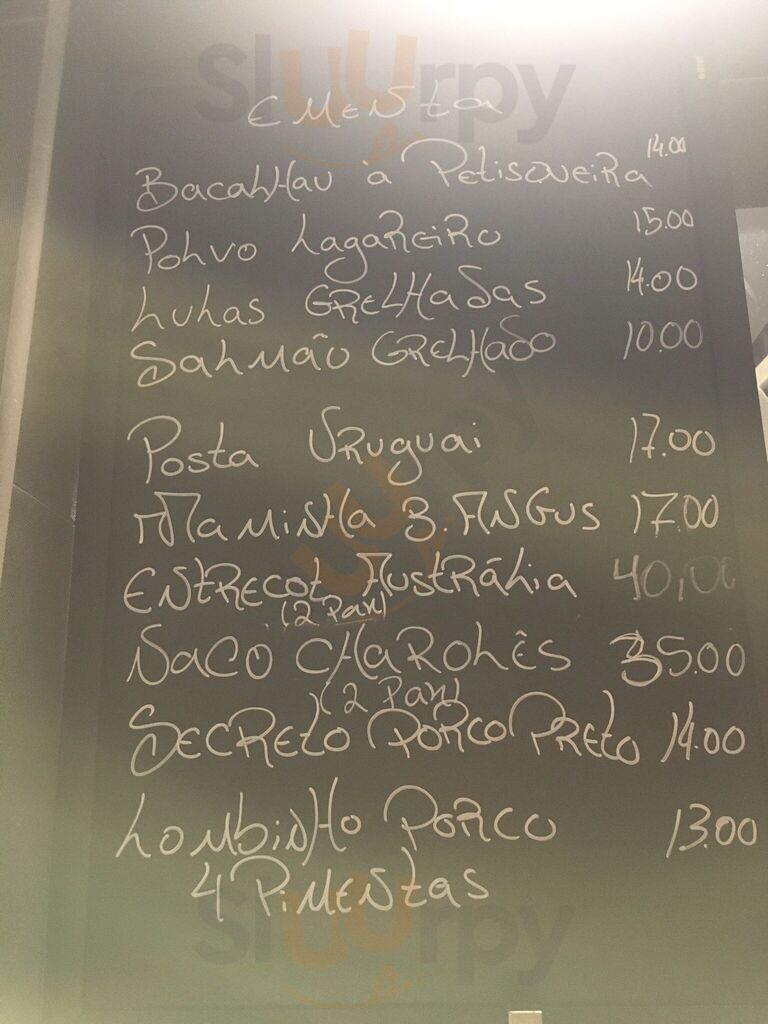 Sluurpy
EMENTA
BACALHAU à PETISQUEIRA 14.00
POLVO LAGAREIRO 15.00
LULAS GRELHADAS 14.00
SALMÃO GRELHADO 10.00
POSTA URUGUAI 17.00
MAMINHA B. ANGUS 17.00
ENTRECOT AUSTRÁLIA 40,00
(2 Pax)
NACO CHAROLÊS 35.00
(2 Pax)
SECRETO PORCO PRETO 14.00
LOMBINHO PORCO 13.00
4 PIMENTAS
Sluurpy